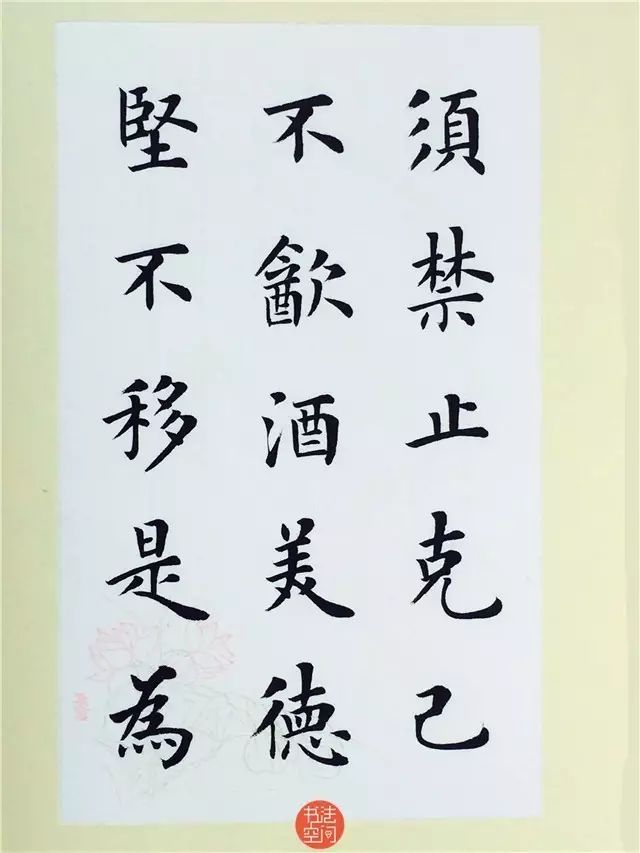 須禁止克己
不㱃酒美德
堅不移是為
书法
空间